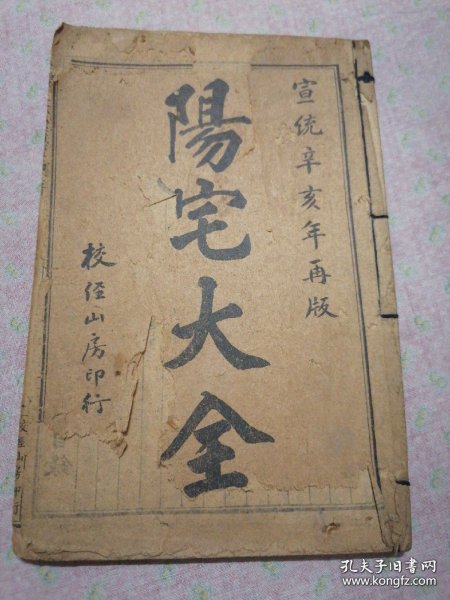 宣统辛亥年再版
陽宅大全
校經山房印行
孔夫子旧书网
www.kongfz.com